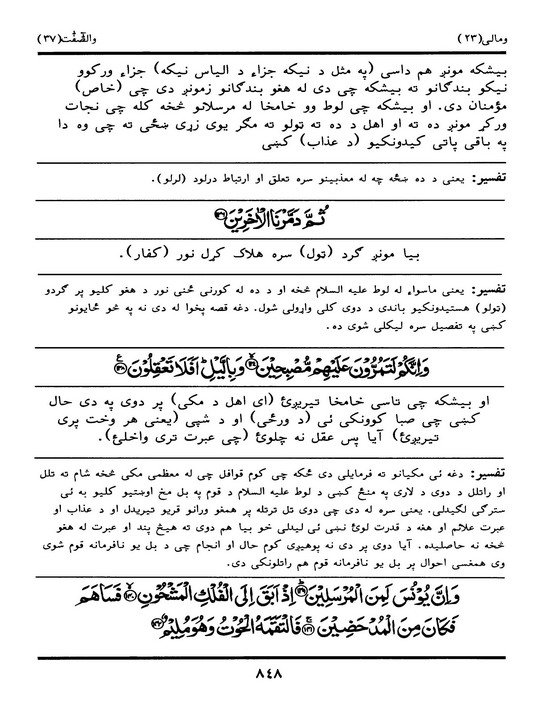 ومالی(۲۳)
والصّٰفّٰت(۳۷)
بیشکه مونږ هم داسی (په مثل د نیکه جزاء د الیاس نیکه) جزاء ورکوو
نیکو بندګانو ته بیشکه چی دی له هغو بندګانو زمونږ دی چی (خاص)
مؤمنان دی. او بیشکه چی لوط وو خامخا له مرسلانو څخه کله چی نجات
ورکړ مونږ ده ته او اهل د ده ته ټولو ته مګر یوی زړی ښځی ته چی وه دا
په باقی پاتی کیدونکیو (د عذاب) کښی
تفسیر: یعنی د ده ښځه چه له معذبینو سره تعلق او ارتباط درلود (لرلو).
ثُمَّ دَمَّرْنَا الْاٰخَرِیْنَ۝۱۳۶
بیا مونږ ګرد (ټول) سره هلاک کړل نور (کفار).
تفسیر: یعنی ماسواء له لوط علیه السلام څخه او د ده له کورنی ځنی نور د هغو کلیو پر ګردو
(ټولو) هستیدونکیو باندی د دوی کلی واړولی شول. دغه قصه پخوا له دی نه په څو ځایونو
کښی په تفصیل سره لیکلی شوی ده.
وَاِنَّكُمْ لَتَمُرُّوْنَ عَلَیْهِمْ مُّصْبِحِیْنَ۝۱۳۷ وَبِالَّیْلِ ؕ اَفَلَا تَعْقِلُوْنَ۝۱۳۸
او بیشکه چی تاسی خامخا تیریږئ (ای اهل د مکی) پر دوی په دی حال
کښی چی صبا کوونکی ئی (د ورځی) او د شپی (یعنی هر وخت پری
تیریږئ) آیا پس عقل نه چلوئ (چی عبرت تری واخلئ).
تفسیر: دغه ئی مکیانو ته فرمایلی دی ځکه چی کوم قوافل چی له معظمی مکی څخه شام ته تلل
او راتلل د دوی د لاری په منځ کښی د لوط علیه السلام د قوم په بل مخ اوښتیو کلیو به ئی
سترګی لګیدلی. یعنی سره له دی چی دوی تل ترتله پر همغو ورانو قریو تیریدل او د عذاب او
عبرت علائم او هغه د قدرت لوئ نښی ئی لیدلی خو بیا هم دوی ته هیڅ پند او عبرت له هغو
څخه نه حاصلیده. آیا دوی پر دی نه پوهیږی کوم حال او انجام چی د بل یو نافرمانه قوم شوی
وی همغسی احوال پر بل یو نافرمانه قوم هم راتلونکی دی.
وَاِنَّ یُوْنُسَ لَمِنَ الْمُرْسَلِیْنَ۝۱۳۹ اِذْ اَبَقَ اِلَی الْفُلْكِ الْمَشْحُوْنِ۝۱۴۰ فَسَاهَمَ
فَكَانَ مِنَ الْمُدْحَضِیْنَ۝۱۴۱ فَالْتَقَمَهُ الْحُوْتُ وَهُوَ مُلِیْمٌ۝۱۴۲
۸۴۸